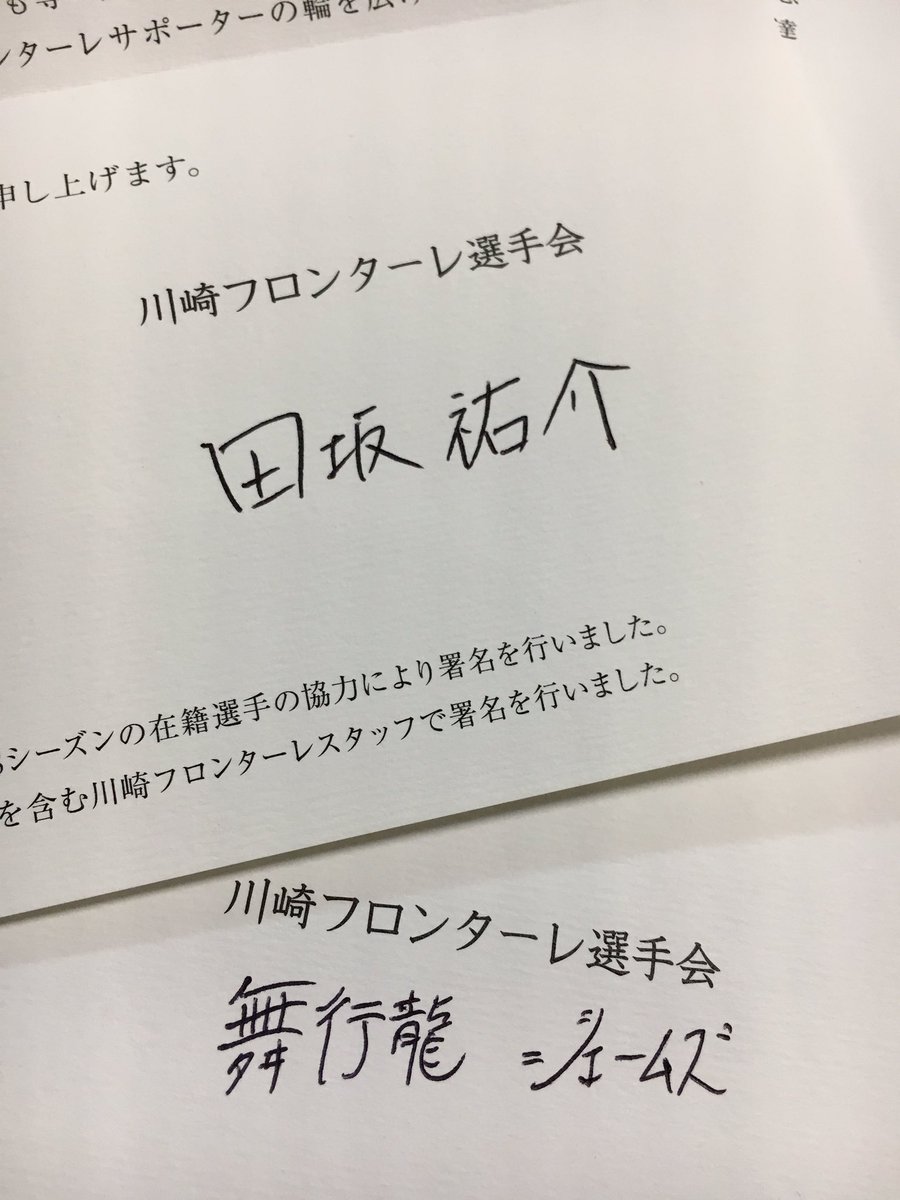 ンターレサポーターの輪を広げ
達
申し上げます。
川崎フロンターレ選手会
田坂 祐介
シーズンの在籍選手の協力により署名を行いました。
を含む川崎フロンターレスタッフで署名を行いました。
川崎フロンターレ選手会
舞行龍 =ジェームズ